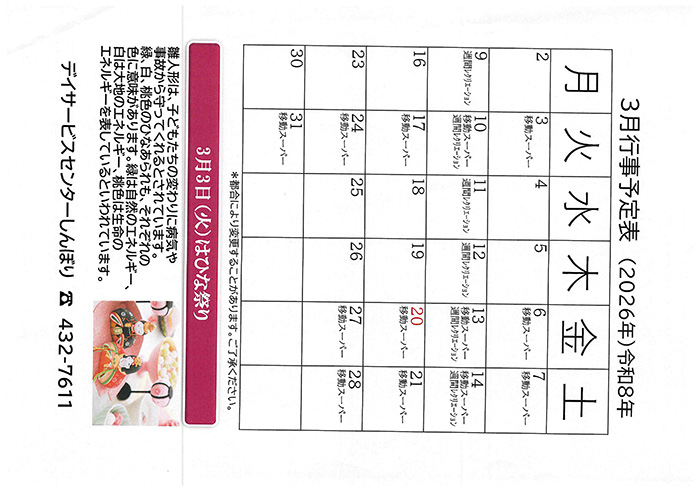 3月行事予定表 (2026年)令和8年
月 火 水 木 金 土
2 3 4 5 6 7
移動スーパー 移動スーパー 移動スーパー
9 10 11 12 13 14
移動スーパー 移動スーパー 移動スーパー
週間レクリエーション 週間レクリエーション 週間レクリエーション 週間レクリエーション 週間レクリエーション 週間レクリエーション
16 17 18 19 20 21
移動スーパー 移動スーパー 移動スーパー
23 24 25 26 27 28
移動スーパー 移動スーパー 移動スーパー
30 31
移動スーパー
*都合により変更することがあります。ご了承ください。
3月3日(火)はひな祭り
雛人形は、子どもたちの変わりに病気や
事故から守ってくれるとされています。
緑、白、桃色のひなあられも、それぞれの
色に意味があります。緑は自然のエネルギー、
白は大地のエネルギー、桃色は生命の
エネルギーを表しているといわれています。
デイサービスセンターしんぼり ☎ 432-7611